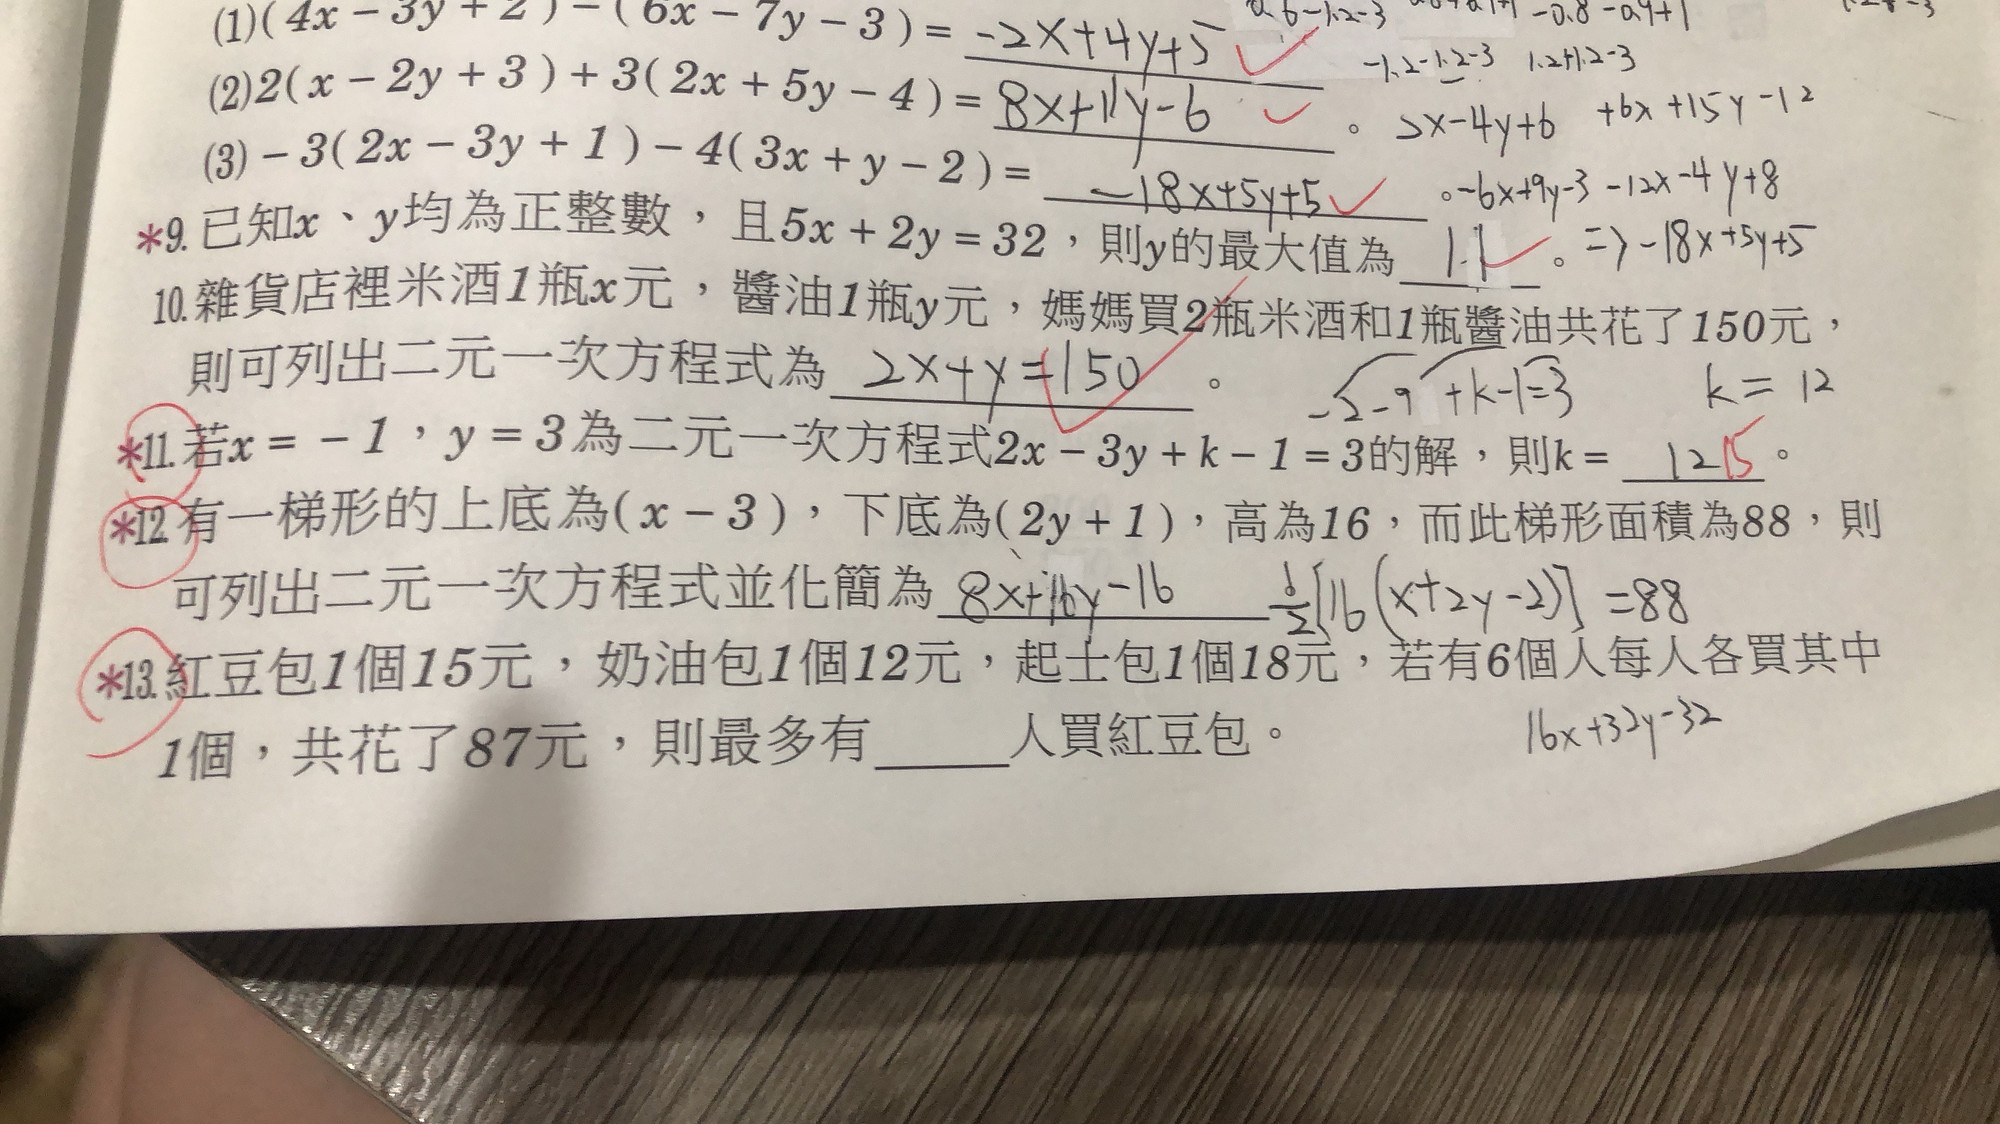 (1)(4x－3y＋2)－(6x－7y－3)＝ -2x+4y+5
-0.8-0.4+1
-1.2-1.2-3 1.2+1.2-3
(2)2(x－2y＋3)＋3(2x＋5y－4)＝ 8x+11y-6 。 2x-4y+6 +6x+15y-12
(3)－3(2x－3y＋1)－4(3x＋y－2)＝ -18x+5y+5 。 -6x+9y-3-12x-4y+8
*9.已知x、y均為正整數，且5x＋2y＝32，則y的最大值為 11 。 => -18x+5y+5
10.雜貨店裡米酒1瓶x元，醬油1瓶y元，媽媽買2瓶米酒和1瓶醬油共花了150元，
則可列出二元一次方程式為 2x+y=150 。 -2-9+k-1=3 k=12
*11.若x＝－1，y＝3為二元一次方程式2x－3y＋k－1＝3的解，則k＝ 12 15 。
*12.有一梯形的上底為(x－3)，下底為(2y＋1)，高為16，而此梯形面積為88，則
可列出二元一次方程式並化簡為 8x+16y-16 1/2[16(x+2y-2)]=88
*13.紅豆包1個15元，奶油包1個12元，起士包1個18元，若有6個人每人各買其中
1個，共花了87元，則最多有____人買紅豆包。 16x+32y-32